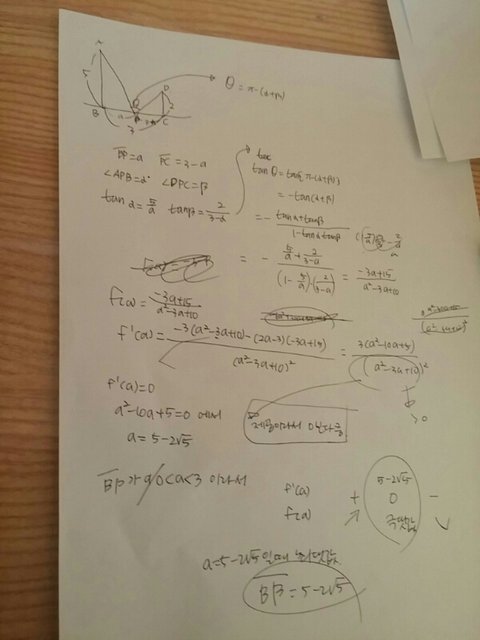 A
5
B
P
C
D
2
3
θ = π-(α+β)
BP=a PC=3-a
∠APB=α ∠DPC=β
tanα=5/a tanβ=2/(3-a)
tanθ=tan{π-(α+β)}
=-tan(α+β)
=-(tanα+tanβ)/(1-tanα tanβ)
=-(5/a+2/(3-a))/(1-(5/a)·(2/(3-a))) = (-3a+15)/(a²-3a+10)
f(a)=(-3a+15)/(a²-3a+10)
f'(a)=(-3(a²-3a+10)-(2a-3)(-3a+15))/(a²-3a+10)² = 3(a²-10a+5)/(a²-3a+10)²
>0
f'(a)=0
a²-10a+5=0 에서
제곱이라서 0보다 큼
a=5-2√5
BP가 a 0<a<3 이라서
5-2√5
f'(a) + 0 -
f(a) ↗ 극댓값 ↘
a=5-2√5일때
BP=5-2√5